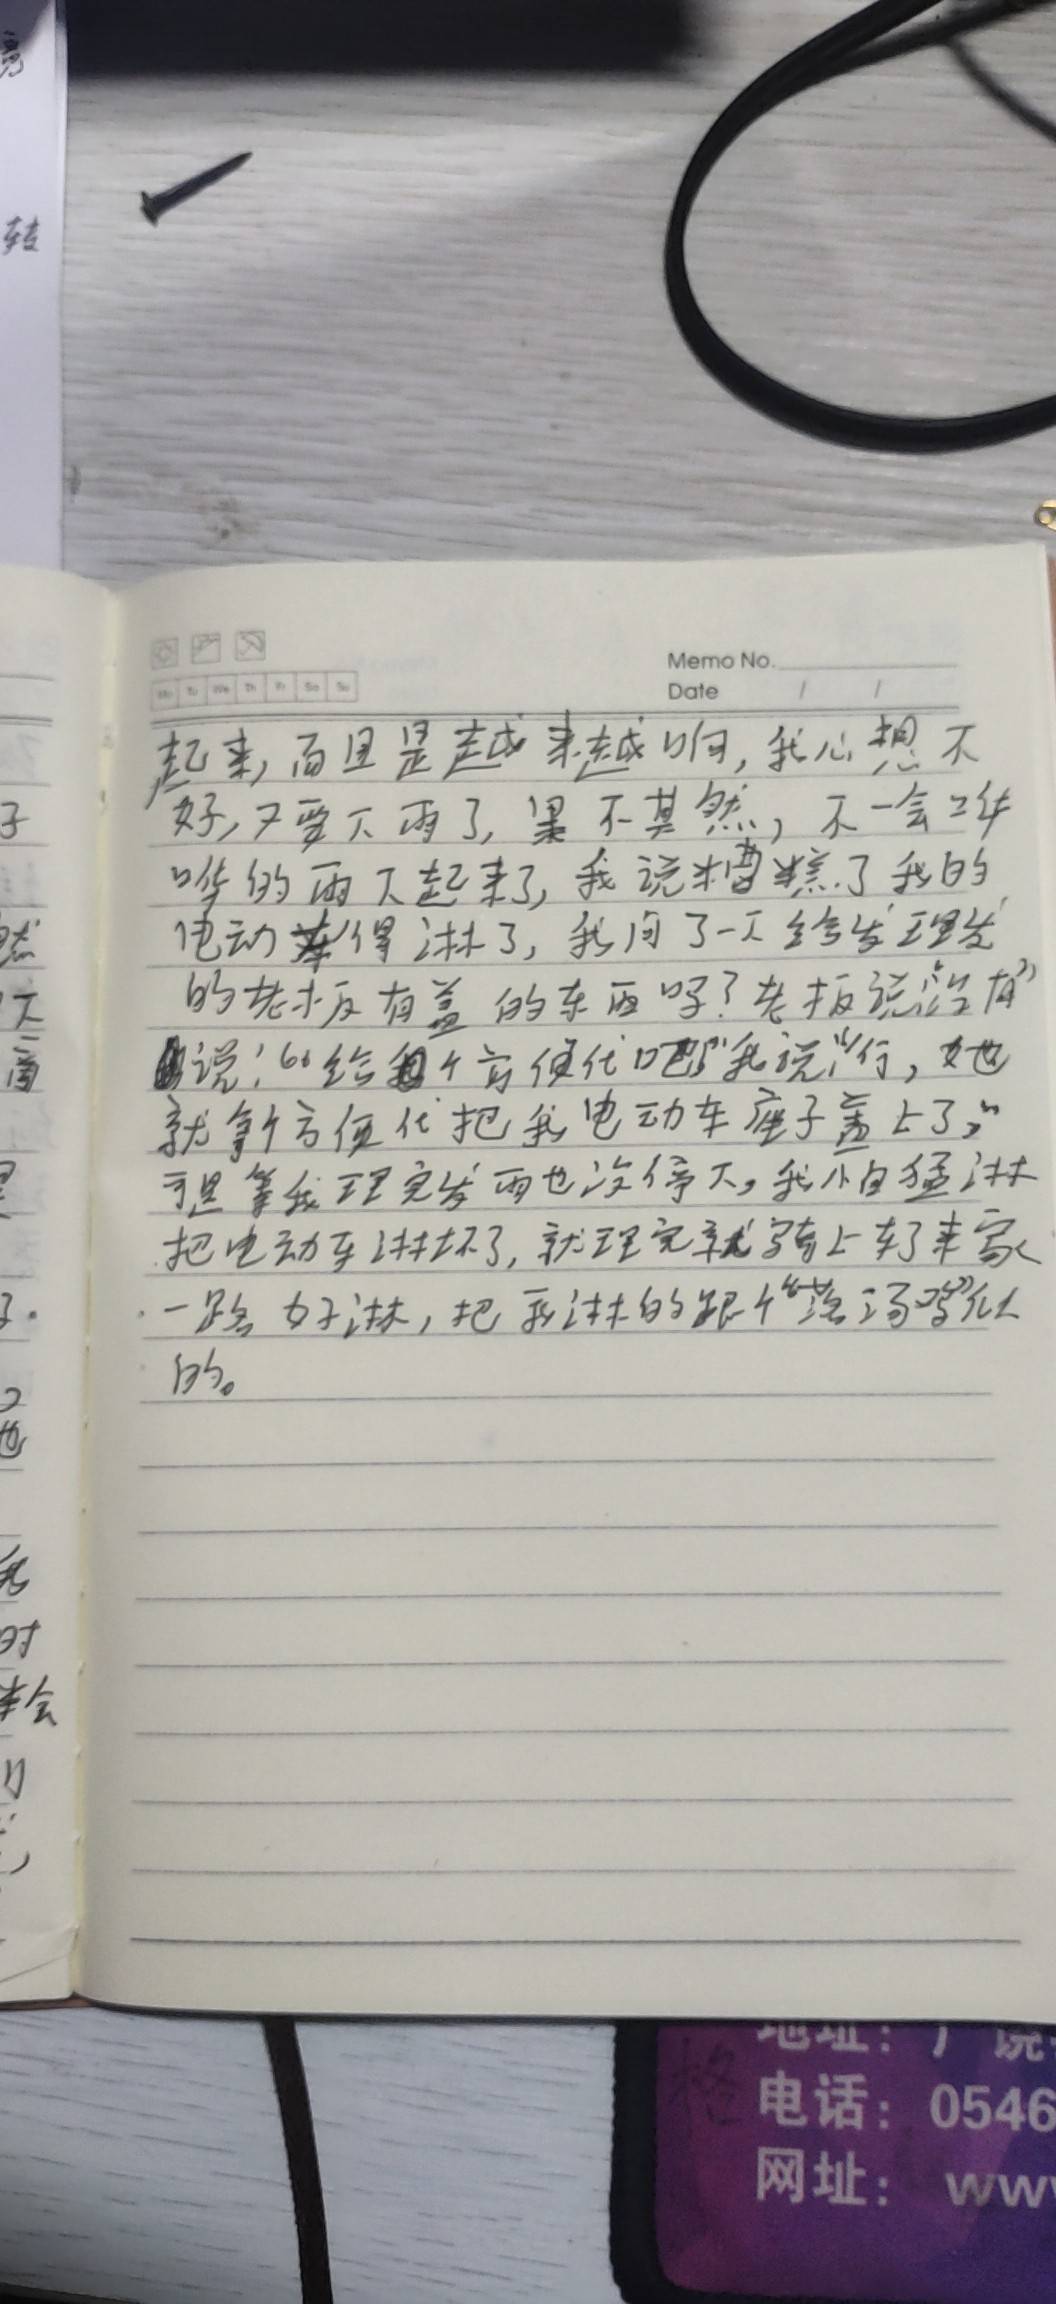 高
转
Memo No.
Date / /
Mo Tu We Th Fr Sa Su
起来,而且是越来越响,我心想不
好,又要下雨了,果不其然,不一会哗
哗的雨下起来了,我说糟糕了我的
电动车得淋了,我问了一下给发理发
的老板有盖的东西吗?老板说“没有”
说:“给我个方便代吧”我说“行,她
就拿个方便代把我电动车座子盖上了,”
可是等我理完发雨也没停下,我小白猛淋
把电动车淋坏了,就理完就骑上车了来家
一路好淋,把我淋的跟个“落汤鸡”似
的。
子
然
下
雨
也
我
时
会
地址:广饶
电话:0546
网址: www